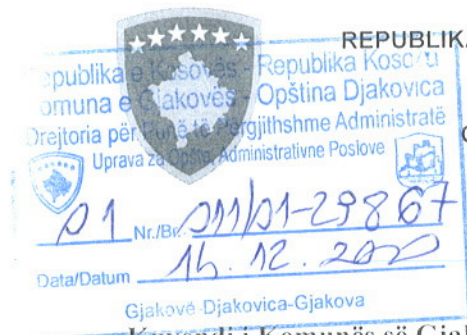 REPUBLIK
Republika e Kosovës - Republika Kosovu
Komuna e Gjakovës - Opština Djakovica
Drejtoria për Punë të Përgjithshme Administratë
Uprava za Opšte Administrativne Poslove
01 Nr./Br. 011/01-29867
Data/Datum 16.12.2020
Gjakovë-Djakovica-Gjakova
Kuvendi i Komunës së Gjak